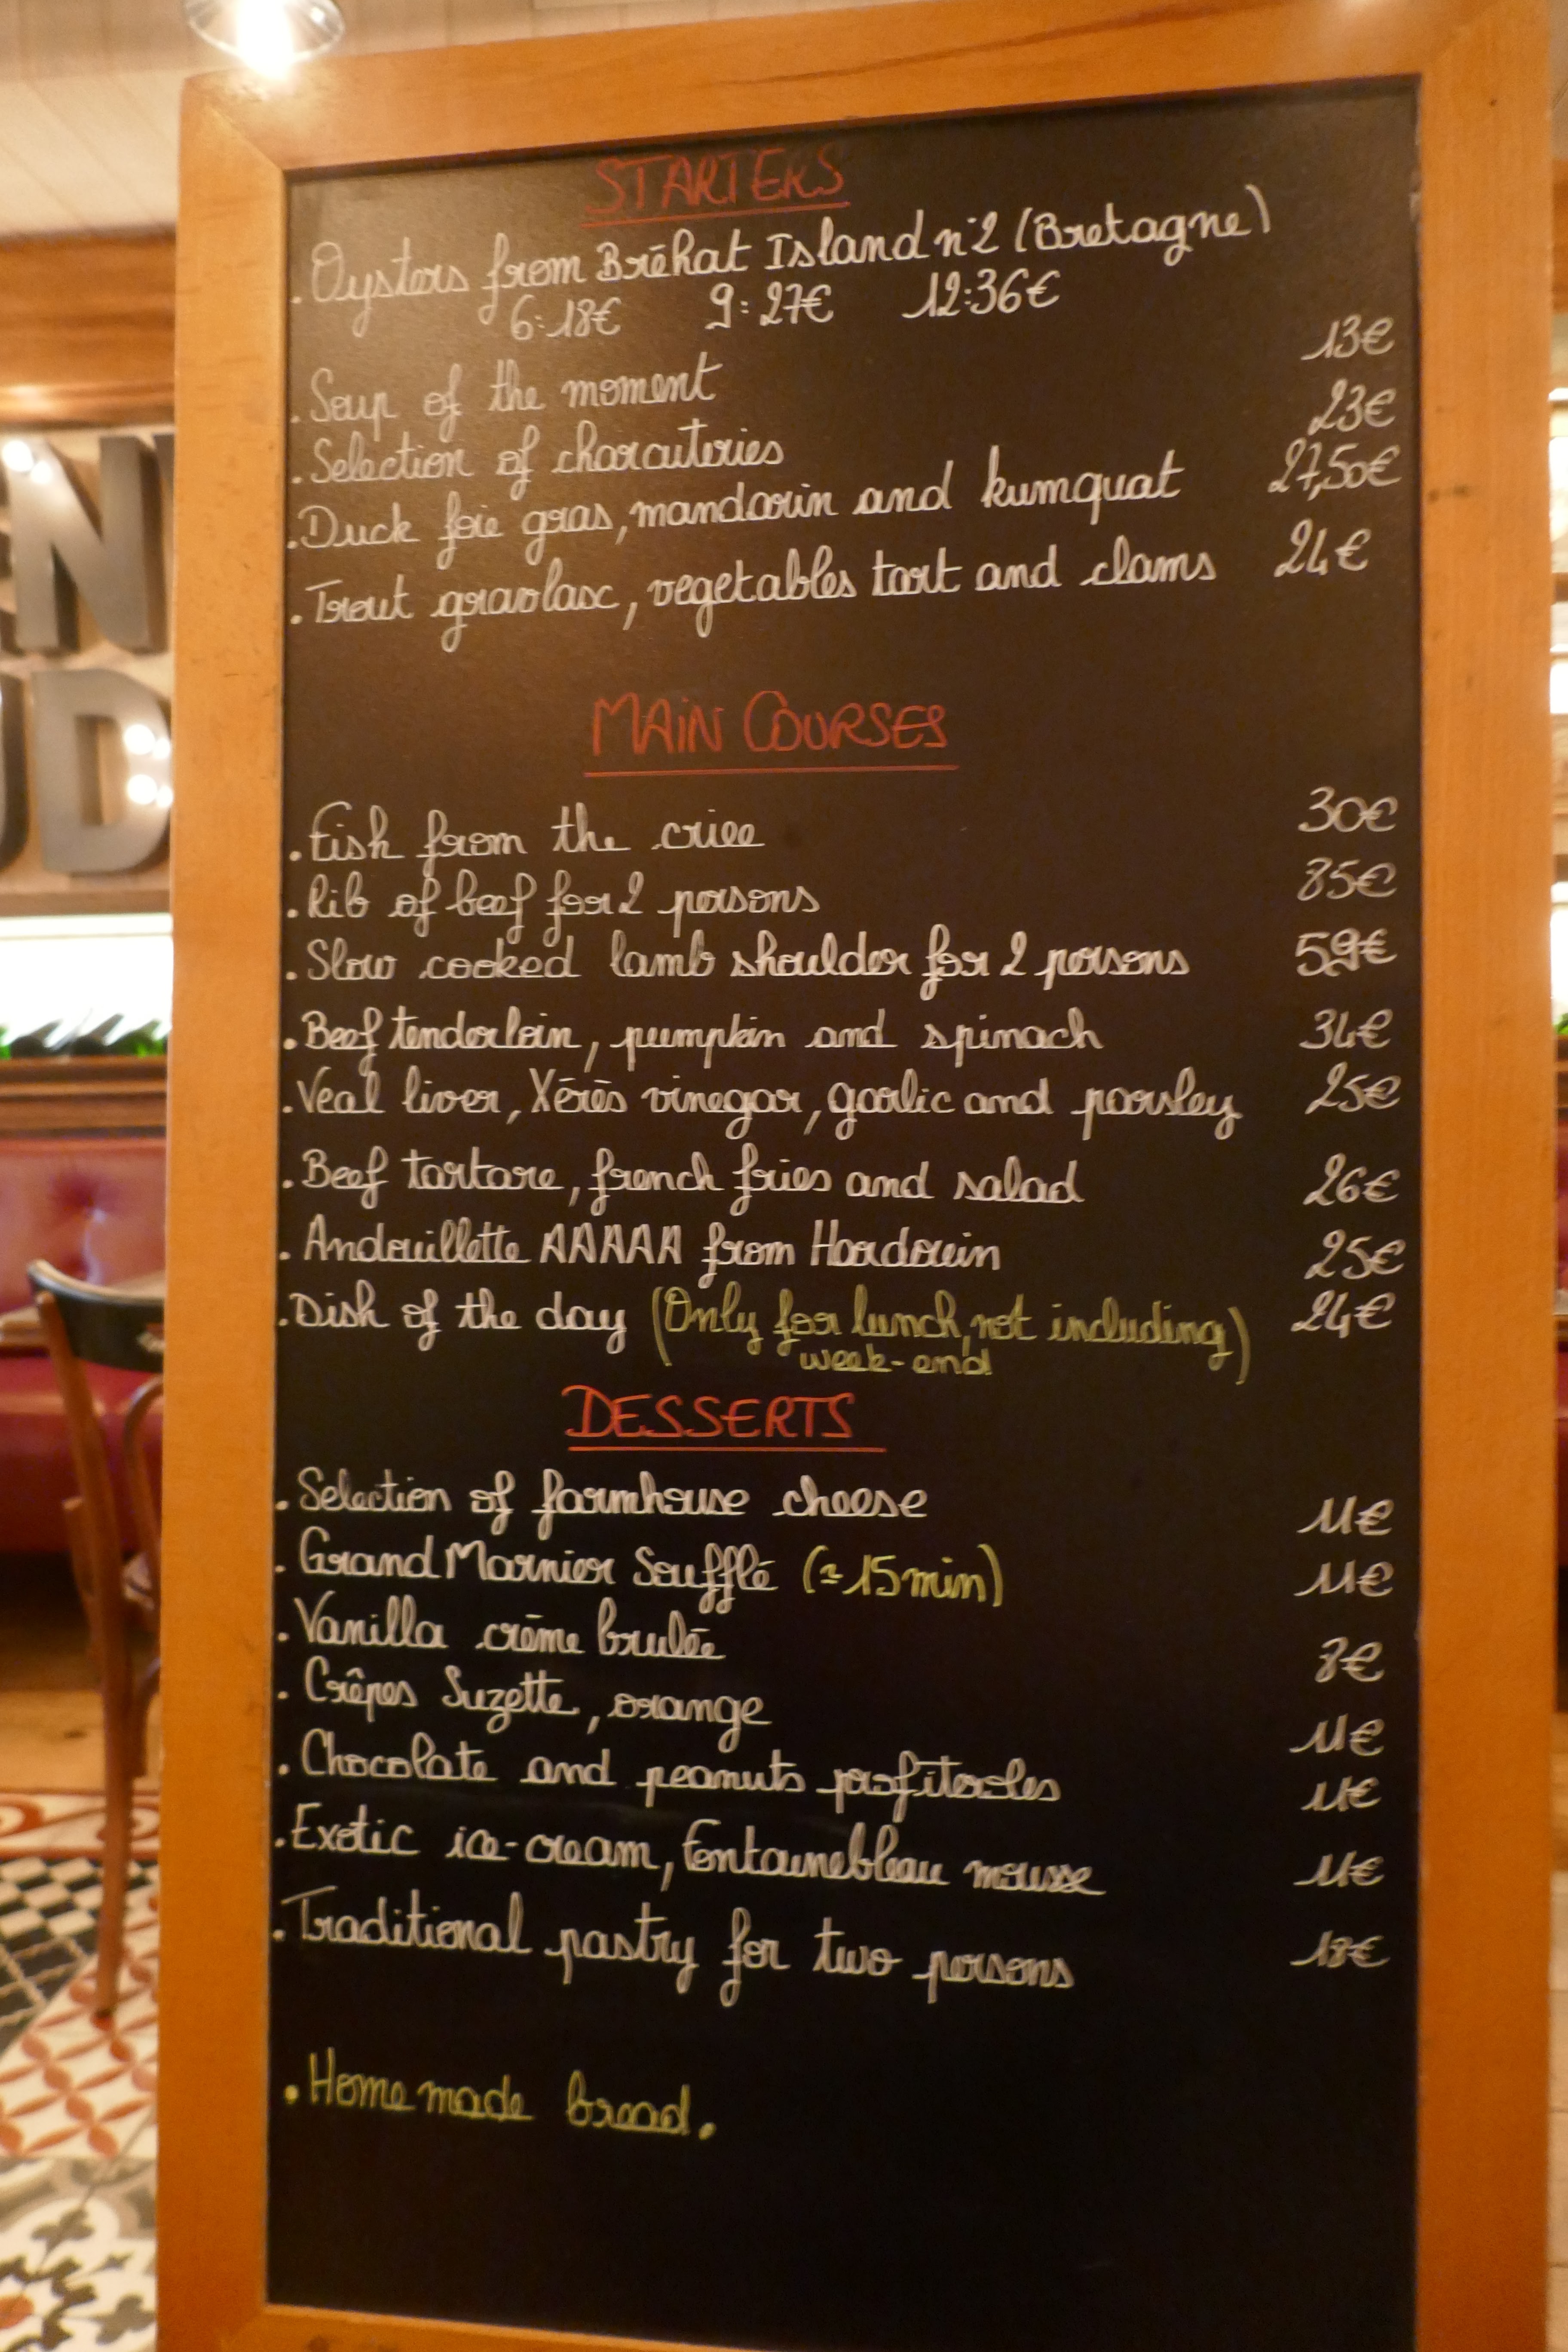 STARTERS
. Oysters from Bréhat Island n°2 (Bretagne)
6: 18€ 9: 27€ 12: 36€
. Soup of the moment 13€
. Selection of charcuteries 23€
. Duck foie gras, mandarin and kumquat 27,50€
. Trout gravlax, vegetables tart and clams 24€
MAIN COURSES
. Fish from the criee 30€
. Rib of beef for 2 persons 85€
. Slow cooked lamb shoulder for 2 persons 59€
. Beef tenderloin, pumpkin and spinach 34€
. Veal liver, Xérès vinegar, garlic and parsley 25€
. Beef tartare, french fries and salad 26€
. Andouillette AAAAA from Hardouin 25€
. Dish of the day (Only for lunch, not including) 24€
week-end
DESSERTS
. Selection of farmhouse cheese 11€
. Grand Marnier Soufflé (≈ 15min) 11€
. Vanilla crème brulée 8€
. Crêpes Suzette, orange 11€
. Chocolate and peanuts profiteroles 11€
. Exotic ice-cream, Fontainebleau mousse 11€
. Traditional pastry for two persons 18€
. Home made bread.